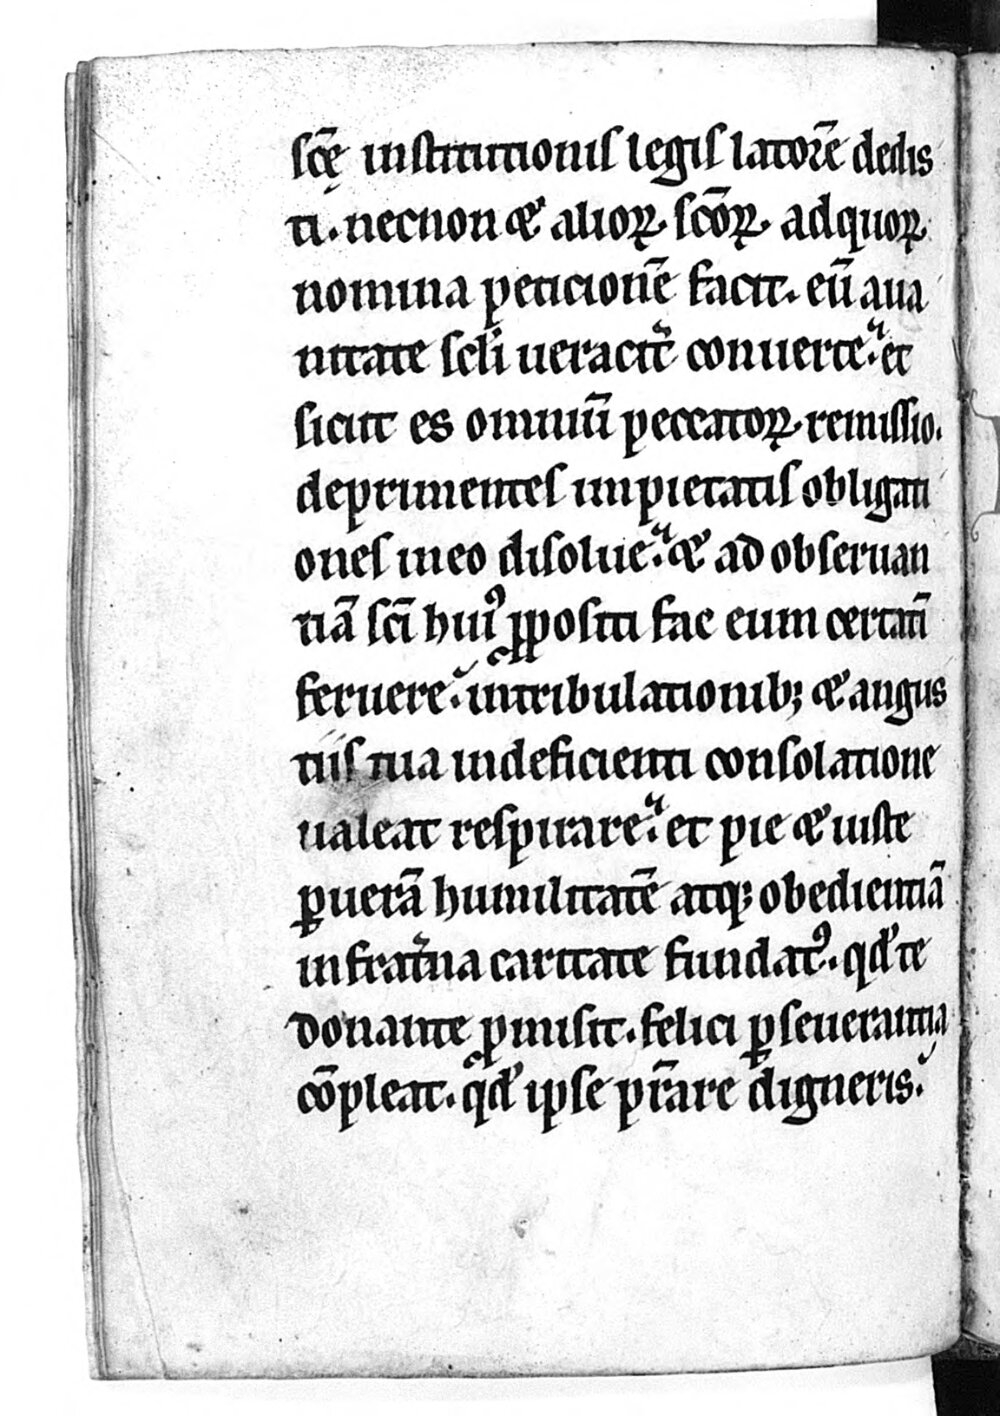 sc̄ę institutionis legis latorē dedis
ti. necnon & alioꝝ. sc̄oꝝ. ad quoꝝ
nomina peticionē facit. eū a ua
nitate scl̄i ueracit̄ conuerte. et
sicut es omniū peccatoꝝ. remissio.
deprimentes impietatis obligati
ones in eo disolue. & ad obseruan
tiā sc̄i huiꝰ ꝓpositi fac eum certati̅
feruere. in tribulationib; & angus
tiis tua indeficienti consolatione
ualeat respirare. et pie & iuste
ꝑ uerā humilitatē atq; obedientiā
in frat̄na caritate fundatꝰ. qd̕ te
donante ꝓmisit. felici ꝑseuerantia
cō̄pleat. qd̕ ipse p̄r̄are digneris.